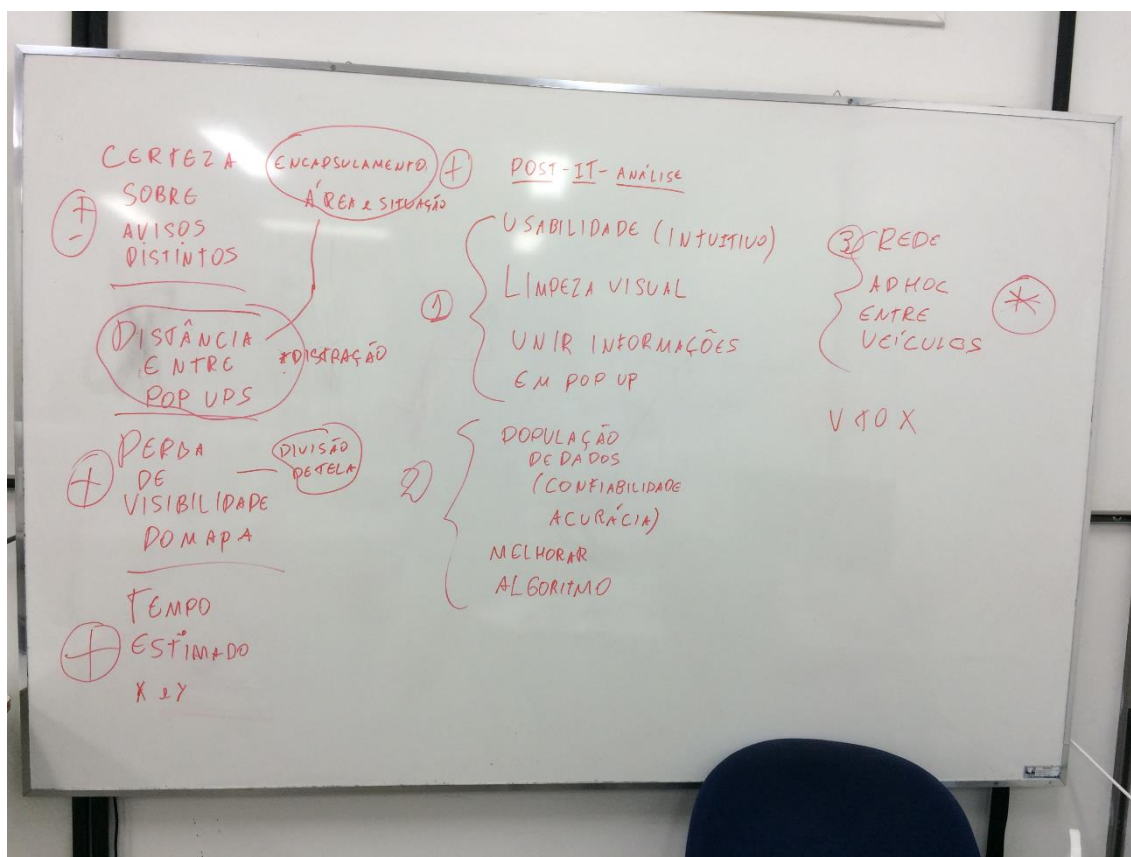 CERTEZA
SOBRE
AVISOS
DISTINTOS
+
-
ENCAPSULAMENTO
ÁREA e SITUAÇÃO
+
DISTÂNCIA
ENTRE
POP UPS
*DISTRAÇÃO
PERDA
DE
VISIBILIDADE
DO MAPA
+
DIVISÃO
DE TELA
TEMPO
ESTIMADO
X e Y
+
POST-IT-ANÁLISE
1
USABILIDADE (INTUITIVO)
LIMPEZA VISUAL
UNIR INFORMAÇÕES
EM POP UP
2
POPULAÇÃO
DE DADOS
(CONFIABILIDADE
ACURÁCIA)
MELHORAR
ALGORITMO
3 REDE
ADHOC
ENTRE
VEÍCULOS
*
V TO X